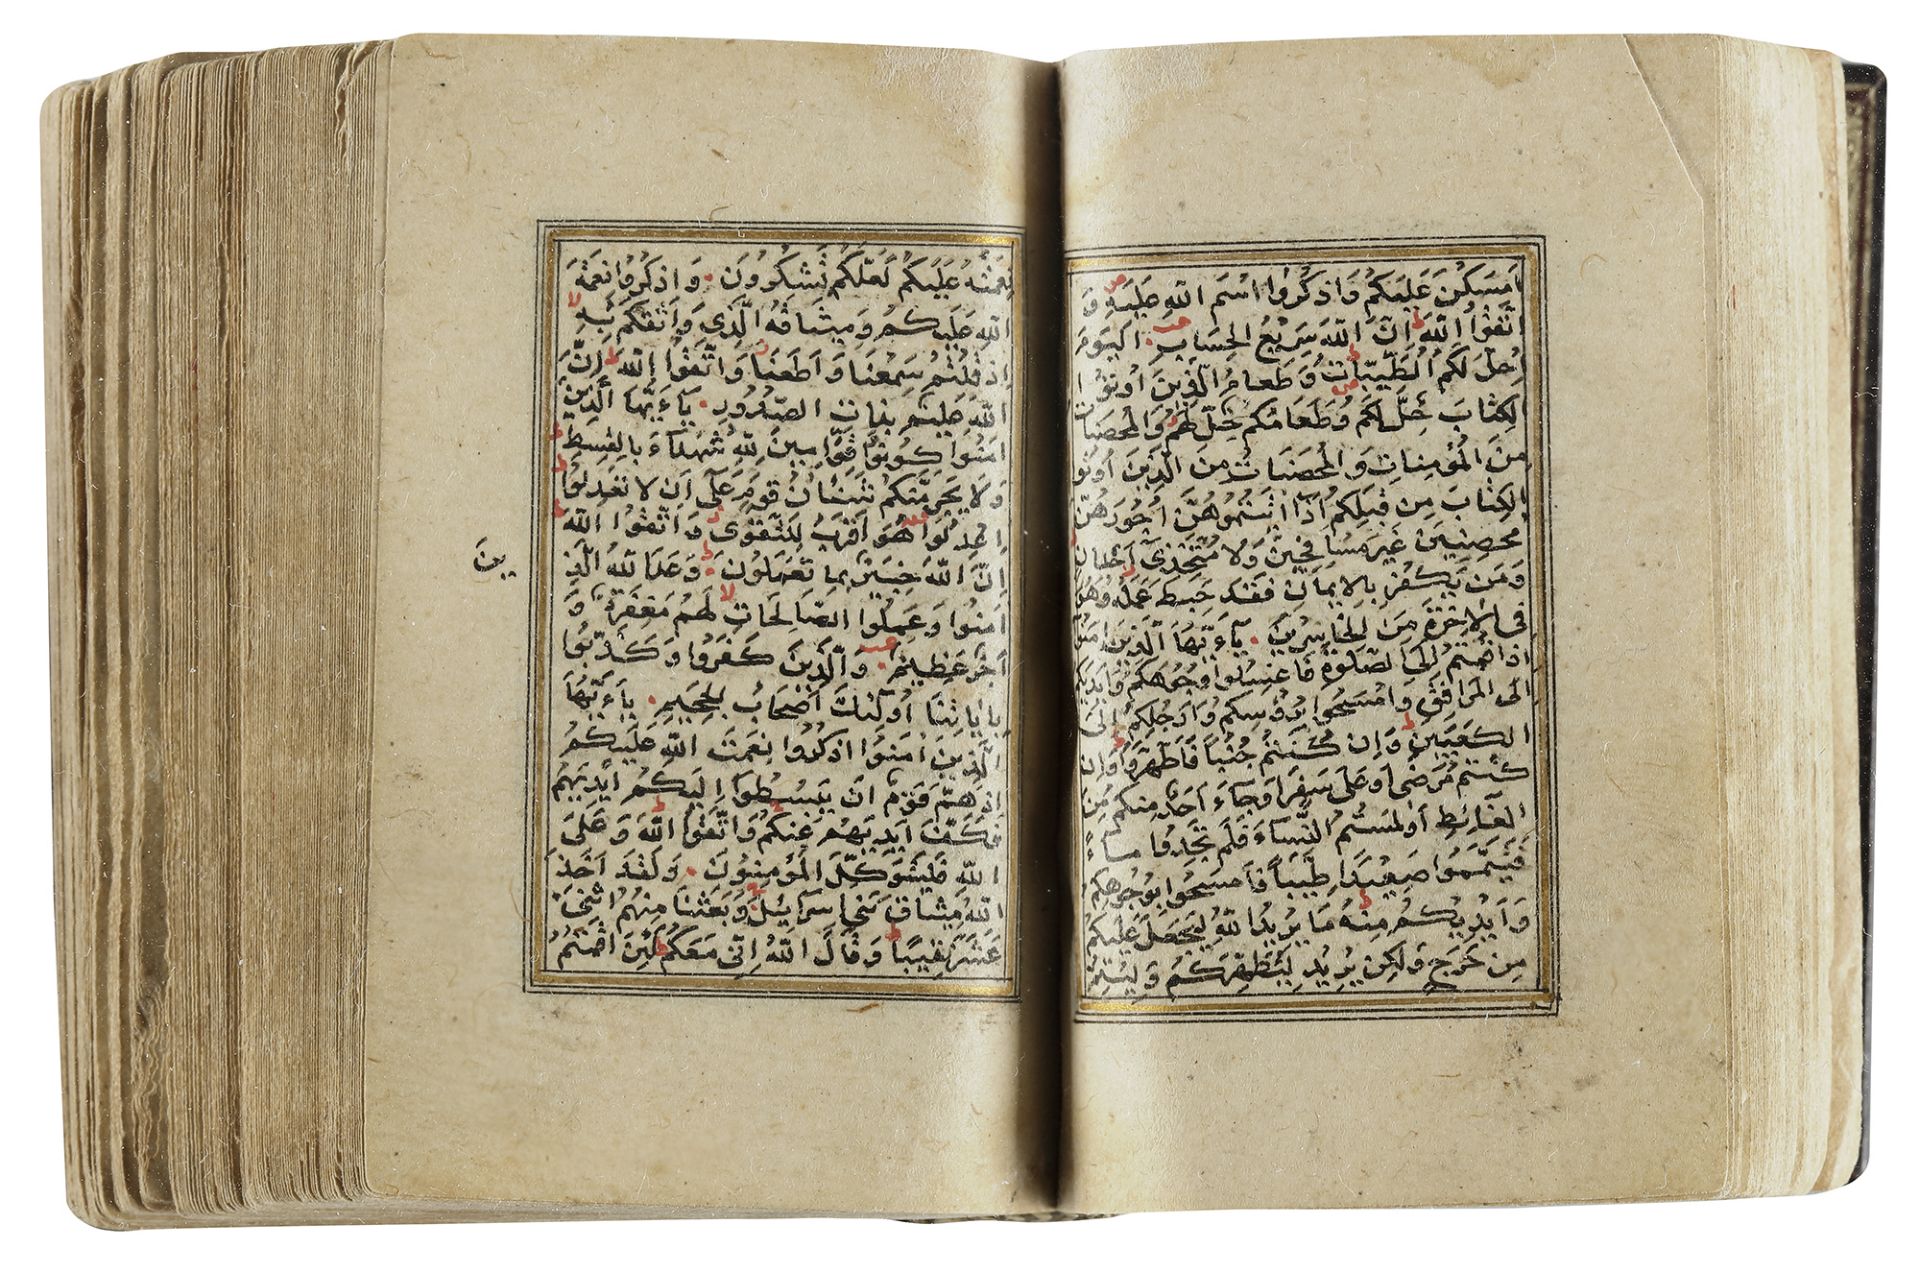 اَمْسَكْنَ عَلَيْكُمْ وَاذْكُرُوا اسْمَ اللهِ عَلَيْهِ وَ
اتَّقُوا اللهَ اِنَّ اللهَ سَرِيعُ الحِسَابِ اَلْيَوْمَ
اُحِلَّ لَكُمُ الطَّيِّبَاتُ وَطَعَامُ الَّذِينَ اُوتُوا
الْكِتَابَ حِلٌّ لَكُمْ وَطَعَامُكُمْ حِلٌّ لَهُمْ وَالْمُحْصَنَاتُ
مِنَ الْمُؤْمِنَاتِ وَالْمُحْصَنَاتُ مِنَ الَّذِينَ اُوتُوا
الْكِتَابَ مِن قَبْلِكُمْ اِذَآ اٰتَيْتُمُوهُنَّ اُجُورَهُنَّ
مُحْصِنِينَ غَيْرَ مُسَافِحِينَ وَلَا مُتَّخِذِىٓ اَخْدَانٍ
وَمَن يَكْفُرْ بِالْاِيمَانِ فَقَدْ حَبِطَ عَمَلُهُ وَهُوَ
فِى الْاٰخِرَةِ مِنَ الْخَاسِرِينَ يَآءَيُّهَا الَّذِينَ اٰمَنُوا
اِذَا قُمْتُمْ اِلَى الصَّلٰوةِ فَاغْسِلُوا وُجُوهَكُمْ وَاَيْدِيَكُمْ
اِلَى الْمَرَافِقِ وَامْسَحُوا بِرُؤُسِكُمْ وَاَرْجُلَكُمْ اِلَى
الْكَعْبَيْنِ وَاِن كُنْتُمْ جُنُبًا فَاطَّهَّرُوا وَاِن
كُنْتُمْ مَرْضَى اَوْ عَلَى سَفَرٍ اَوْ جَآءَ اَحَدٌ مِنكُمْ مِنَ
الْغَآئِطِ اَوْ لٰمَسْتُمُ النِّسَآءَ فَلَمْ تَجِدُوا مَآءً
فَتَيَمَّمُوا صَعِيدًا طَيِّبًا فَامْسَحُوا بِوُجُوهِكُمْ
وَاَيْدِيكُمْ مِنْهُ مَا يُرِيدُ اللهُ لِيَجْعَلَ عَلَيْكُمْ
مِنْ حَرَجٍ وَلَكِن يُرِيدُ لِيُطَهِّرَكُمْ وَلِيُتِمَّ
نِعْمَتَهُ عَلَيْكُمْ لَعَلَّكُمْ تَشْكُرُونَ وَاذْكُرُوا نِعْمَةَ
اللهِ عَلَيْكُمْ وَمِيثَاقَهُ الَّذِى وَاثَقَكُمْ بِهِ
اِذْ قُلْتُمْ سَمِعْنَا وَاَطَعْنَا وَاتَّقُوا اللهَ اِنَّ
اللهَ عَلِيمٌ بِذَاتِ الصُّدُورِ يَآءَيُّهَا الَّذِينَ
اٰمَنُوا كُونُوا قَوَّامِينَ لِلّٰهِ شُهَدَآءَ بِالْقِسْطِ
وَلَا يَجْرِمَنَّكُمْ شَنَئَانُ قَوْمٍ عَلَى اَن لَا تَعْدِلُوا
اِعْدِلُوا هُوَ اَقْرَبُ لِلتَّقْوَى وَاتَّقُوا اللهَ
اِنَّ اللهَ خَبِيرٌ بِمَا تَعْمَلُونَ وَعَدَ اللهُ الَّذِ
ينَ
اٰمَنُوا وَعَمِلُوا الصَّالِحَاتِ لَهُمْ مَغْفِرَةٌ وَ
اَجْرٌ عَظِيمٌ وَالَّذِينَ كَفَرُوا وَكَذَّبُوا
بِاٰيَاتِنَا اُولٰٓئِكَ اَصْحَابُ الْجَحِيمِ يَآءَيُّهَا
الَّذِينَ اٰمَنُوا اذْكُرُوا نِعْمَتَ اللهِ عَلَيْكُمْ
اِذْ هَمَّ قَوْمٌ اَن يَبْسُطُوا اِلَيْكُمْ اَيْدِيَهُمْ
فَكَفَّ اَيْدِيَهُمْ عَنكُمْ وَاتَّقُوا اللهَ وَعَلَى
اللهِ فَلْيَتَوَكَّلِ الْمُؤْمِنُونَ وَلَقَدْ اَخَذَ
اللهُ مِيثَاقَ بَنِى اِسْرَآئِيلَ وَبَعَثْنَا مِنْهُمُ اثْنَىْ
عَشَرَ نَقِيبًا وَقَالَ اللهُ اِنِّى مَعَكُمْ لَئِنْ اَقَمْتُمُ